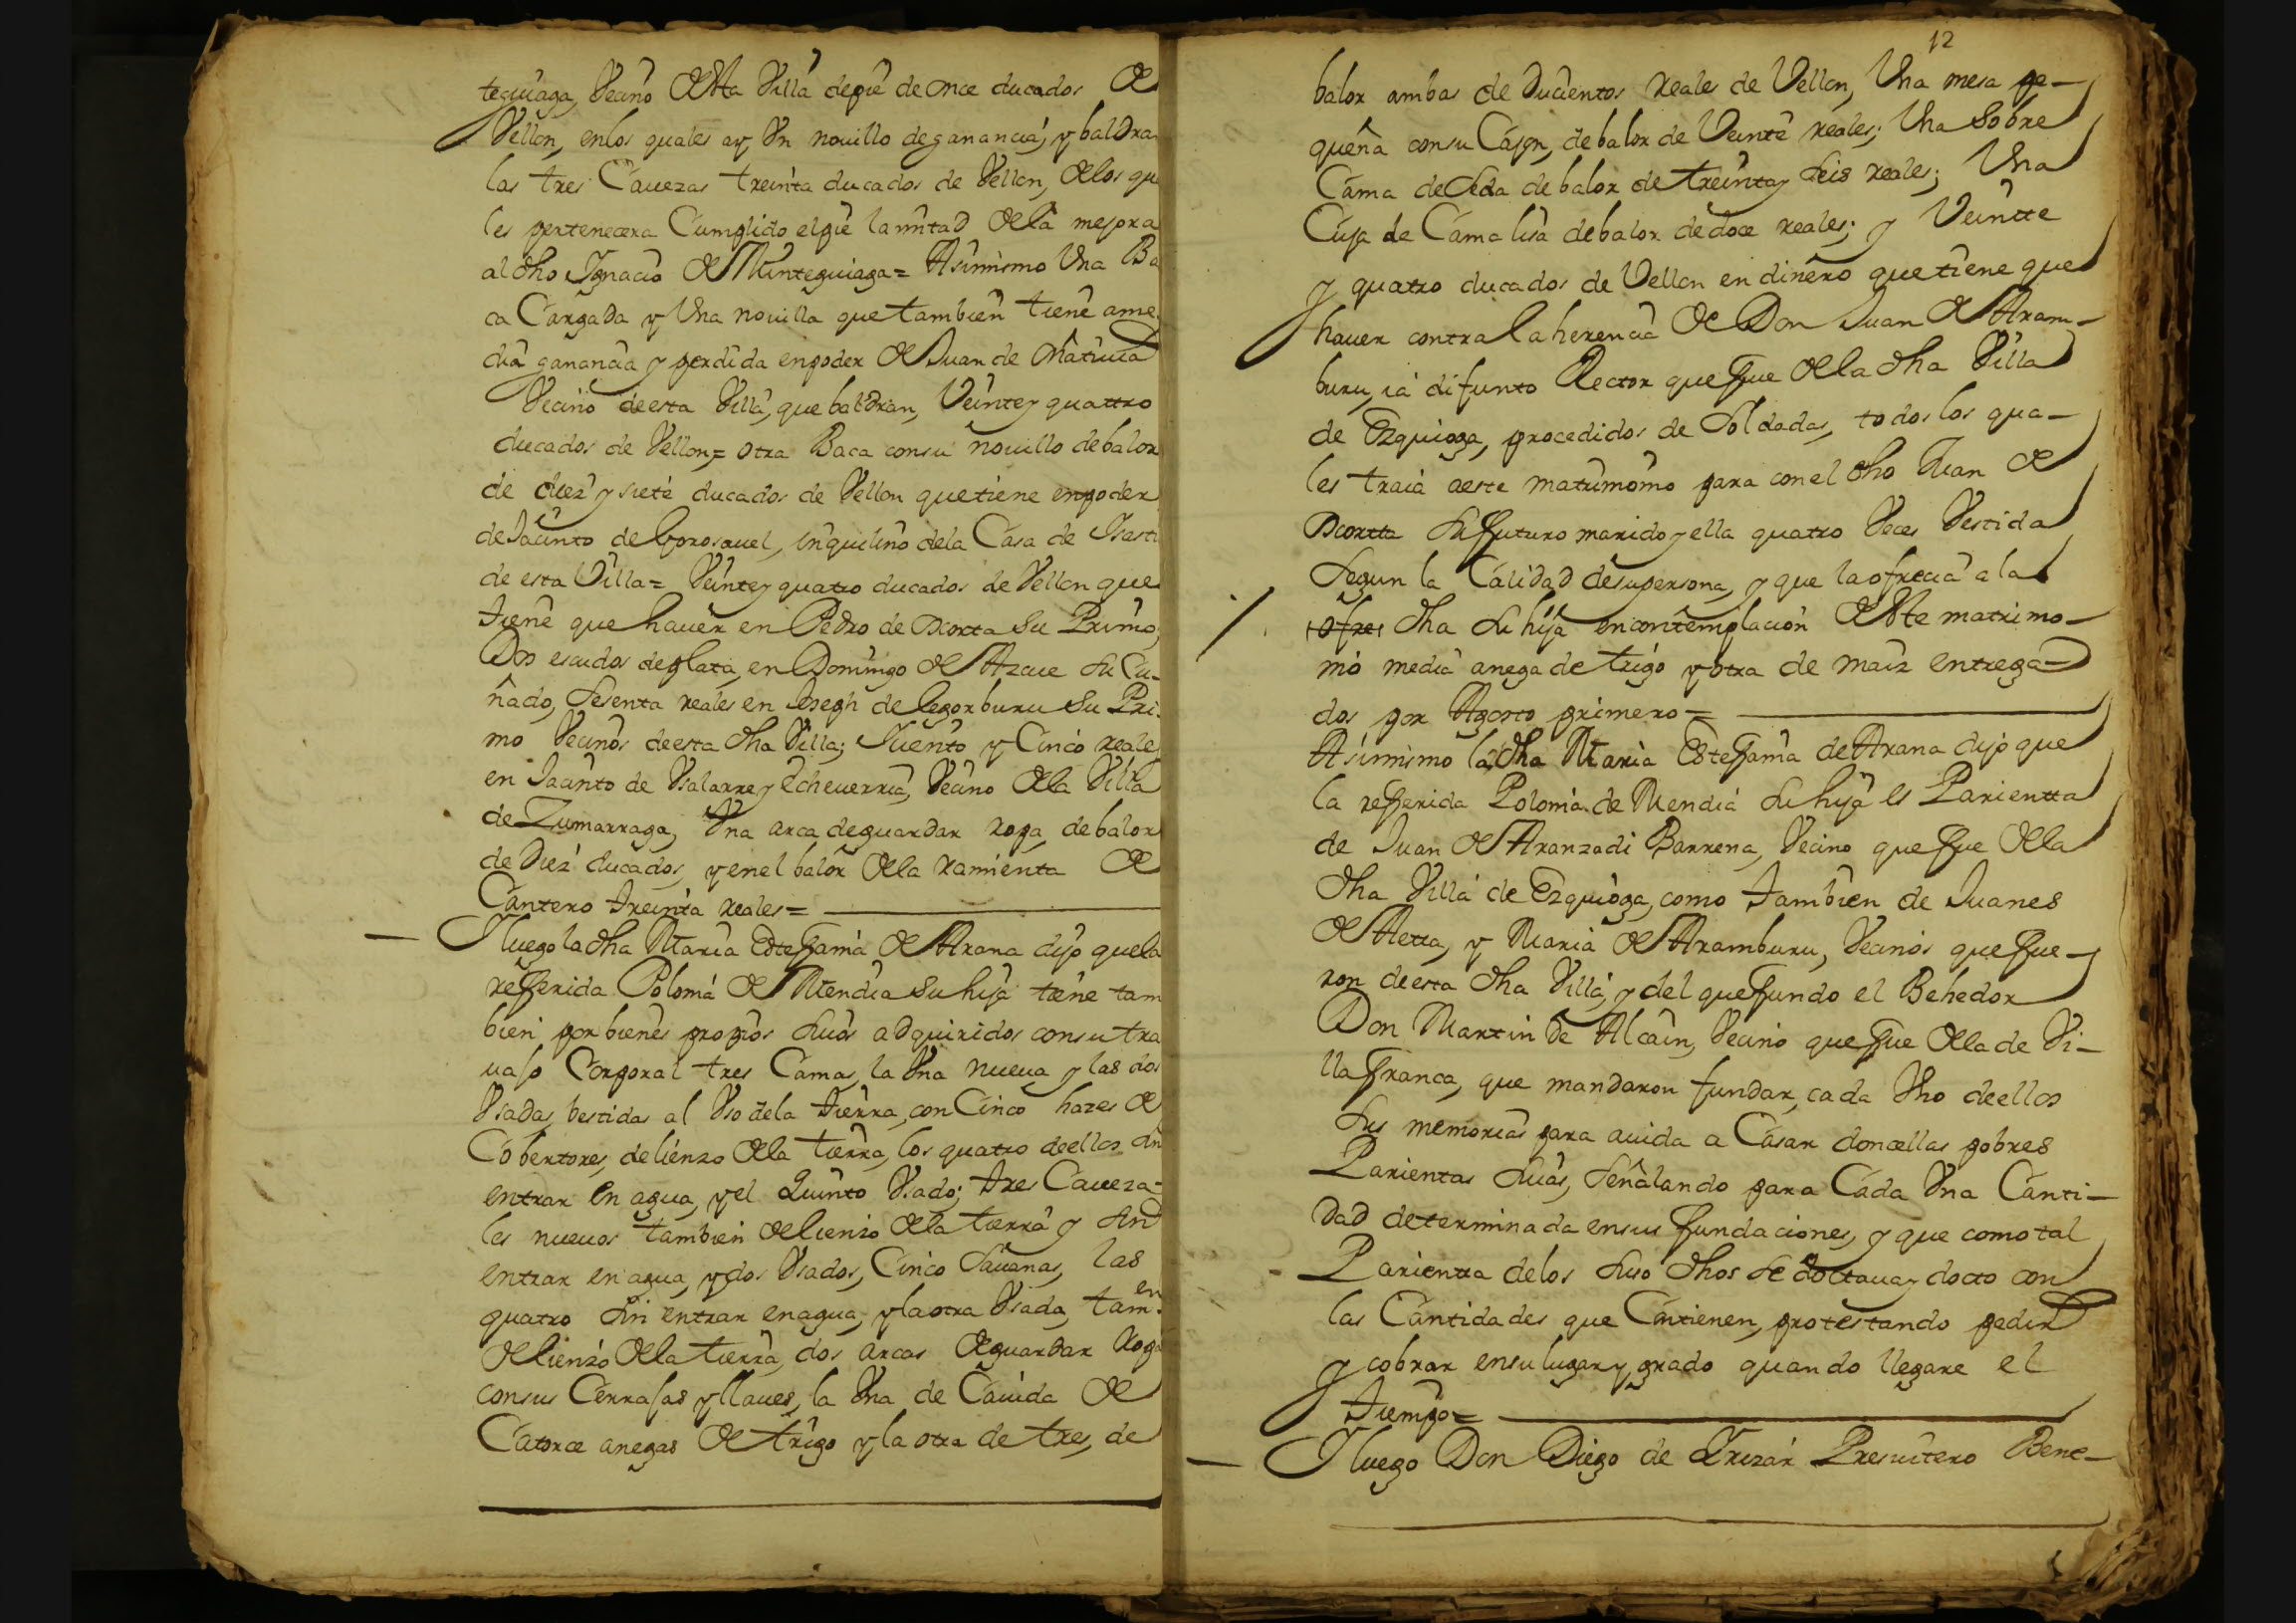 teguiaga, Vecino de esta Villa depie de once ducados de
Vellon, enlos quales ay Vn nouillo de ganancia, y baldra
las tres Cauezas treinta ducados de Vellon, de los qu
les pertenecera Cumplido elpie la mitad de la mejora
al dho Ignacio de Minteguiaga = Asimismo Vna Ba
ca Cargada y Vna nouilla que tambien tiene ame
dia ganancia y perdida enpoder de Juan de
Vecino deesta Villa, que baldran, Veinte y quattro
ducados de Vellon = otra Baca consu nouillo debalor
de diez y siete ducados de Vellon quetiene enpoder
de Jacinto de Gorosauel, inquilino dela Casa de Isasti
de esta Villa = Veinte y quatro ducados de Vellon que
tiene que hauer en Pedro de Dcorta Su Primo,
Dos escudos deplata, en Domingo de Azcue Su Cu-
ñado, Sesenta reales en Joseph de Legorburu Su Pri-
mo Vecinos deesta dha Villa; Ziento y Cinco reales
en Jacinto de Vsalarre y Echeuerria, Vecino de la Villa
de Zumarraga, Vna arca deguardar ropa debalor
de Diez ducados, y enel balor de la ramienta de
Cantero treinta reales =
Yluego la dha Maria Estefania de Arana dijo quela
referida Polonia de Mendia Su hija tiene tam
bien por bienes propios Suios adquiridos consu tra
uajo Corporal tres Camas, la Vna nueua y las dos
Vsadas, bestidas al Vso dela tierra, con Cinco hazes de
Cobertores, delienzo de la tierra, los quatro deellos Sin
entrar en agua, y el Quinto Vsado; tres Caueza-
les nueuos tambien de lienzo de la tierra y Sin
entrar en agua, y dos Vsados, Cinco Sauanas, las
quatro Sin entrar enagua, y la otra Vsada, tam.en
de lienzo de la tierra, dos arcas de guardar ropa
consus Cerrajas y llaues, la Vna de Cauida de
Catorce anegas de trigo y la otra de tres, de
12
balor ambas de Ducientos reales de Vellon, Vna mesa pe-
queña consu Cajon, debalor de Veinte reales; Vna Sobre
Cama de Seda debalor de treinta y Seis reales; Vna
Cuja de Cama lisa debalor dedoce reales; y Veintte
y quatro ducados de Vellon en dinero que tiene que
hauer contra la herencia de Don Juan de Aram-
buru, ia difunto Rector que fue de la dha Villa
de Ezquioga, procedidos de Soldadas, todos los qua-
les traia aeste matrimonio para con el dho Juan de
Dcortta Su futuro marido y ella quatro Veces Vestida
Segun la Calidad desupersona, y que la ofrecia a la
ofre dha Su hija encontemplacion de este matrimo-
nio media anega de trigo y otra de maiz entrega-
dos por Agosto primero =
Asimismo la dha Maria Estefania de Arana dijo que
la referida Polonia de Mendia Su hija es Parientta
de Juan de Aranzadi Barrena, Vecino que fue de la
dha Villa de Ezquioga, como tambien de Juanes
de Aetta, y Maria de Aramburu, Vecinos que fue-
ron deesta dha Villa, y del quefundo el Behedor
Don Martin de Alcain, Vecino que fue de la de Vi-
llafranca, que mandaron fundar, cada Vno deellos
Sus memorias para auida a Casar doncellas pobres
Parientas Suias, Señalando para Cada Vna Canti-
dad determinada ensus fundaciones, y que como tal
Parientta delos Suso dhos Se doctaua y docto con
las Cantidades que Contienen, protestando pedir
y cobrar ensu lugar y grado quando llegare el
tiempo =
Yluego Don Diego de Yrizar Presuitero Bene-